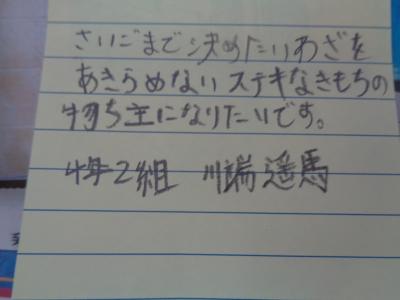 さいごまで決めたいわざを
あきらめないステキなきもちの
持ち主になりたいです。
4年2組 川端遥馬